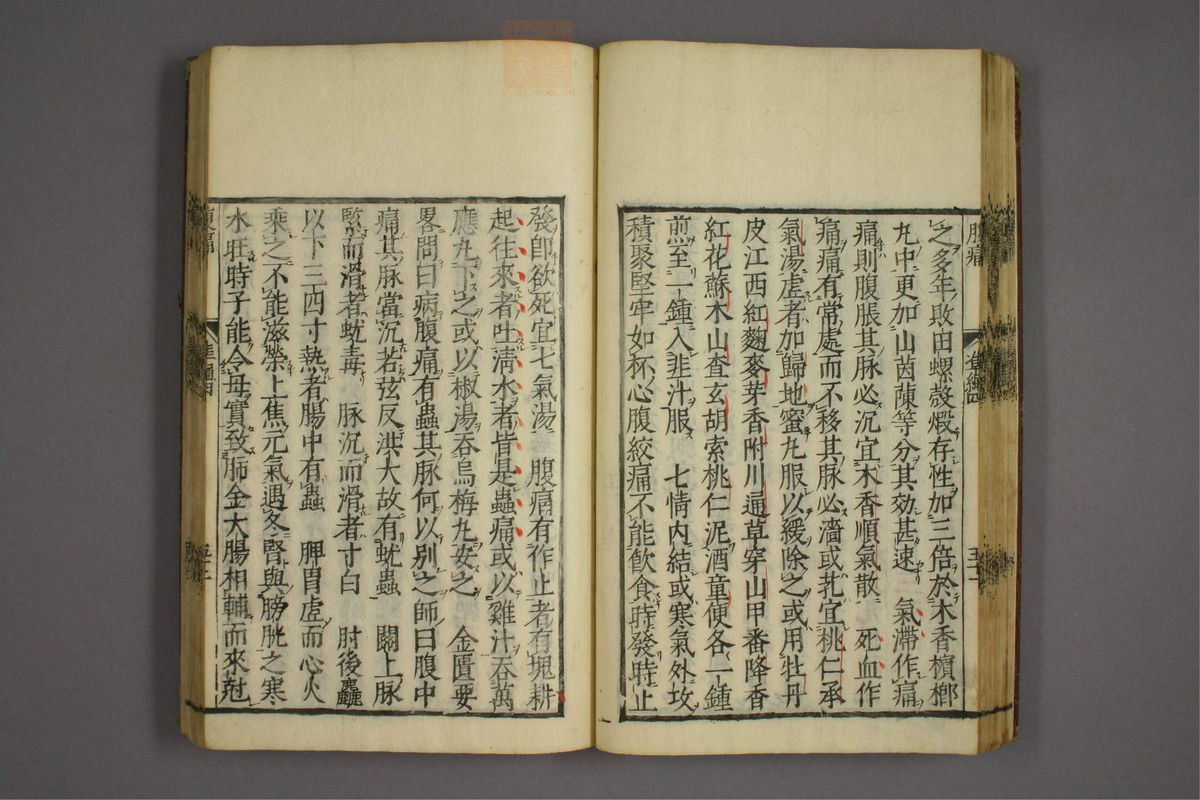 之多年敗田螺殼煅存性加三倍於木香檳榔
丸中更加山茵陳等分其効甚速　氣滯作痛
痛則腹脹其脉必沉宜木香順氣散　死血作
痛痛有常處而不移其脉必濇或芤宜桃仁承
氣湯虚者加歸地蜜丸服以緩除之或用牡丹
皮江西紅麴麥芽香附川通草穿山甲番降香
紅花蘇木山查玄胡索桃仁泥酒童便各一鍾
煎至一鍾入韭汁服　七情内結或寒氣外攻
積聚堅牢如杯心腹絞痛不能飲食時發時止
發卽欲死宜七氣湯　腹痛有作止者有塊耕
起往來者吐淸水者皆是蟲痛或以雞汁吞萬
應丸下之或以椒湯吞烏梅丸安之　金匱要
畧問曰病腹痛有蟲其脉何以別之師曰腹中
痛其脉當沉若弦反洪大故有蚘蟲　關上脉
緊而滑者蚘毒　脉沉而滑者寸白　肘後麤
以下三四寸熱者腸中有蟲　脾胃虚而心火
乘之不能滋榮上焦元氣遇冬腎與膀胱之寒
水旺時子能令母實致肺金大腸相輔而來尅